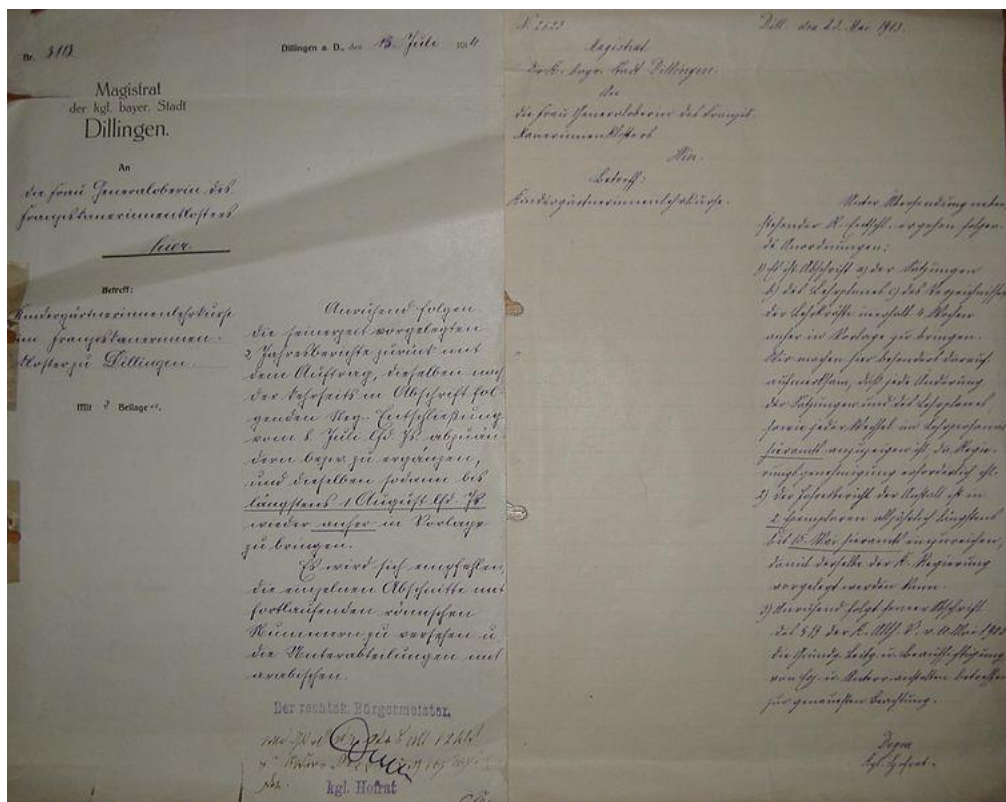 Nr. 3113.
Dillingen a. D., den 13. Juli 1914
Magistrat
der kgl. bayer. Stadt
Dillingen.
An
die Frau Generaloberin des
Franziskanerinnenklosters
hier.
Betreff:
Kindergärtnerinnenlehrkurse
im Franziskanerinnen-
kloster zu Dillingen.
Mit 3 Beilagen.
Anruhend folgen
die seinerzeit vorgelegten
2 Jahresberichte zurück mit
dem Auftrag, dieselben nach
der kehrseits in Abschrift fol-
genden Reg. Entschließung
vom 8. Juli lfd. Js. abzuän-
dern bezw. zu ergänzen,
und dieselben sodann bis
längstens 1 August lfd. Js.
wieder anher in Vorlage
zu bringen.
Es wird sich empfehlen,
die einzelnen Abschnitte mit
fortlaufenden römischen
Nummern zu versehen u.
die Unterabteilungen mit
arabischen.
Der rechtsk. Bürgermeister.
kgl. Hofrat
N. 2523
Dill. den 23. Mai 1913.
Magistrat
der K. bayr. Stadt Dillingen.
An
die Frau Generaloberin des Franzis-
kanerinnenklosters
Hier.
Betreff:
Kindergärtnerinnenlehrkurse.
Unter Übersendung neben-
stehender R. Entschl. ergehen folgen-
de Anordnungen:
1) Es ist Abschrift a) der Satzungen
b) des Lehrplanes c) des Verzeichnisses
der Lehrkräfte innerhalb 4 Wochen
anher in Vorlage zu bringen.
Wir machen hier besonders darauf
aufmerksam, daß jede Änderung
der Satzungen und des Lehrplanes,
sowie jeder Wechsel im Lehrpersonal
hieramts anzuzeigen ist, da Regie-
rungsgenehmigung erforderlich ist.
2) Der Jahresbericht der Anstalt ist in
2 Exemplaren alljährlich längstens
bis 15. Mai hieramts einzureichen,
damit derselbe der K. Regierung
vorgelegt werden kann.
3) Anruhend folgt ferner Abschrift
des § 13 der K. Allh. V. v. 10. Mai
die Gründg. Leitg. u. Beaufsichtigung
von Erz. u. Unterr. anstalten betreffend
zur genauesten Beachtung.
Degen
Kgl. Hofrat.